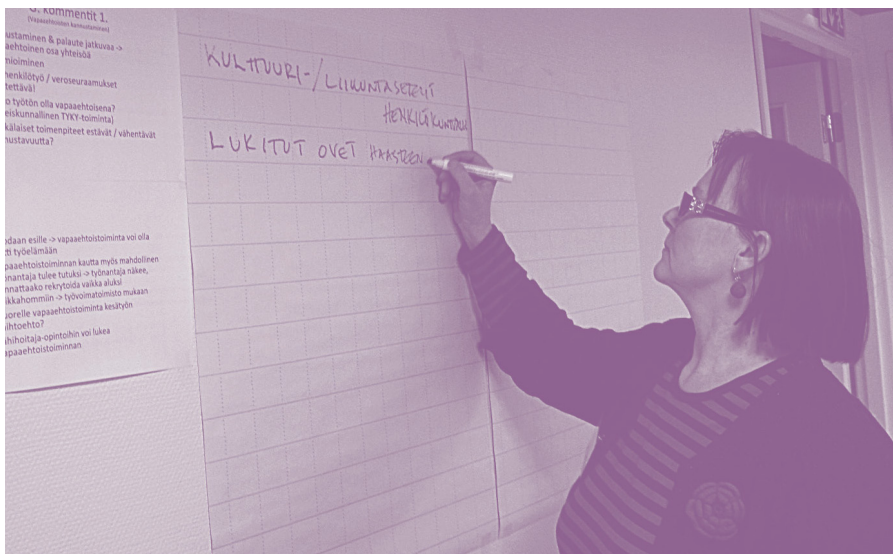 kommentit 1.
(Vapaaehtoisten kannustaminen)
ustaminen & palaute jatkuvaa ->
aehtoinen osa yhteisöä
mioiminen
henkilötyö / veroseuraamukset
tettävä!
o työtön olla vapaaehtoisena?
eiskunnallinen TYKY-toiminta)
kälaiset toimenpiteet estävät / vähentävät
nustavuutta?
odaan esille -> vapaaehtoistoiminta voi olla
ti työelämään
paaehtoistoiminnan kautta myös mahdollinen
önantaja tulee tutuksi -> työnantaja näkee,
nnattaako rekrytoida vaikka aluksi
ikkahommiin -> työvoimatoimisto mukaan
uorelle vapaaehtoistoiminta kesätyön
ihtoehto?
ähihoitaja-opintoihin voi lukea
apaaehtoistoiminnan
KULTTUURI-/LIIKUNTASETELIT
LUKITUT OVET HAASTEEN